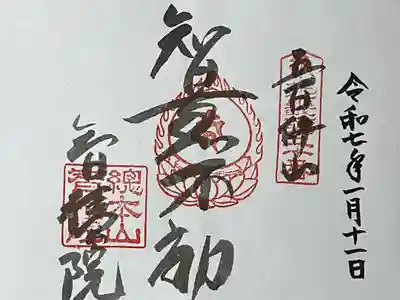 五百佛山
令和七年一月十一日
智恵不動
智積院
總本山